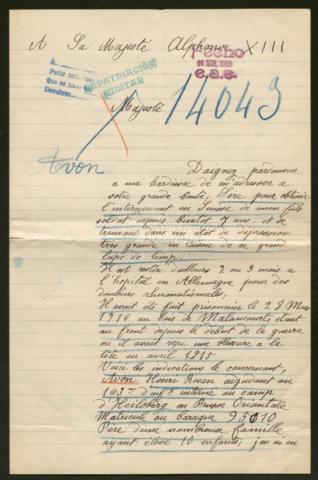 A Sa Majesté Alphonse XIII
Fecho
e.a.e.
REPATRIACIÓN
MILITAR
Majesté
14043
Avon
Daignez pardonner
a ma hardiesse de m'adresser a
votre grande bonté, Sire pour obtenir
l'internement en Suisse de mon fils
soldat depuis bientot 7 ans, et se
trouvant dans un état de dépression
très grande en raison de ce grand
laps de temp.
Il est resté d'ailleurs 2 ou 3 mois a
l'hopital en Allemagne pour des
douleurs rhumatismales.
Il avait été fait prisonnier le 22 Mars
1916 au bois de Malancourt, étant
au front depuis le debut de la guerre
ou il avait reçu une blessure a la
tête en avril 1915
Voici les indications le concernant,
Avon Henri adjudant au
163me d'infie interné au camp
d'Heilsberg en Prusse Orientale
Matricule ou Baraque 95010
Père d'une nombreuse famille
ayant élevé 10 enfants, j'en ai eu